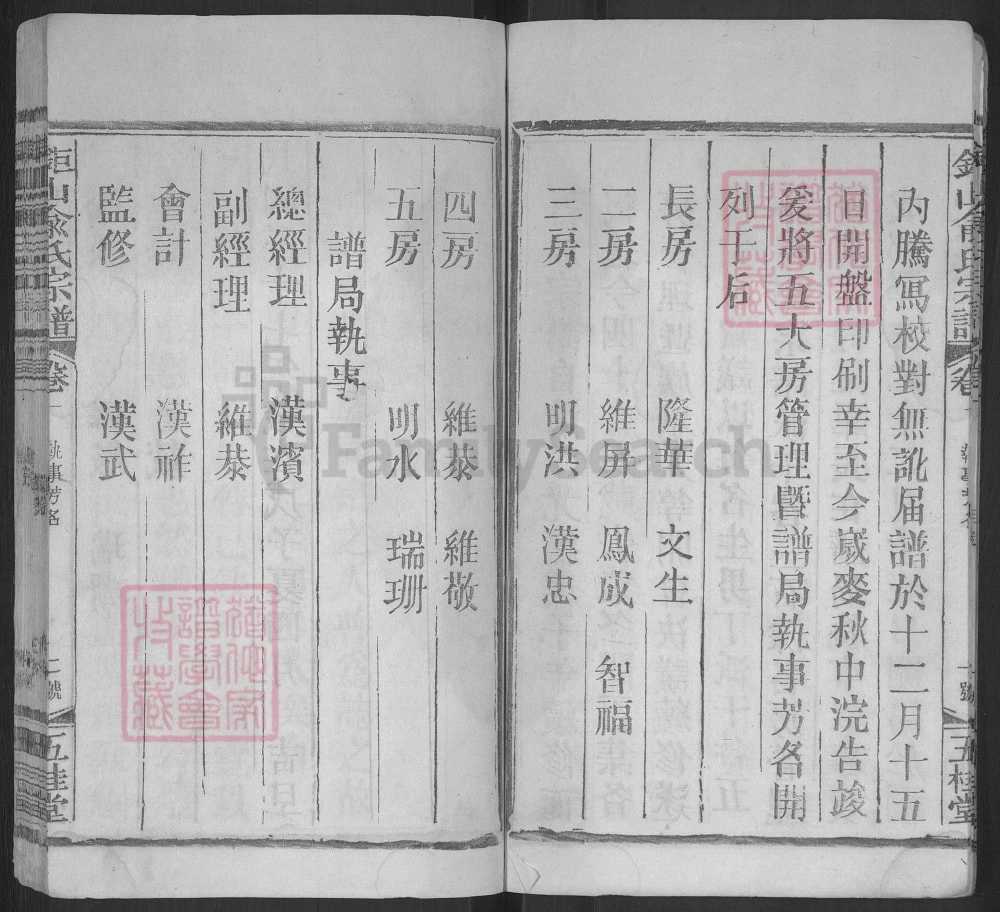 內騰寫校對無訛届譜於十二月十五
日開盤印刷幸至今歲麥秋中浣告竣
爰將五大房管理暨譜局執事芳名開
列于后
長房 隆華 文生
二房 維屏 鳳成 智福
三房 明洪 漢忠
四房 維恭 維敬
五房 明水 瑞珊
譜局執事
總經理 漢濱
副經理 維恭
會計 漢祚
監修 漢武
鉅山俞氏宗譜 卷一 執事芳名 二號 五桂堂
FamilySearch